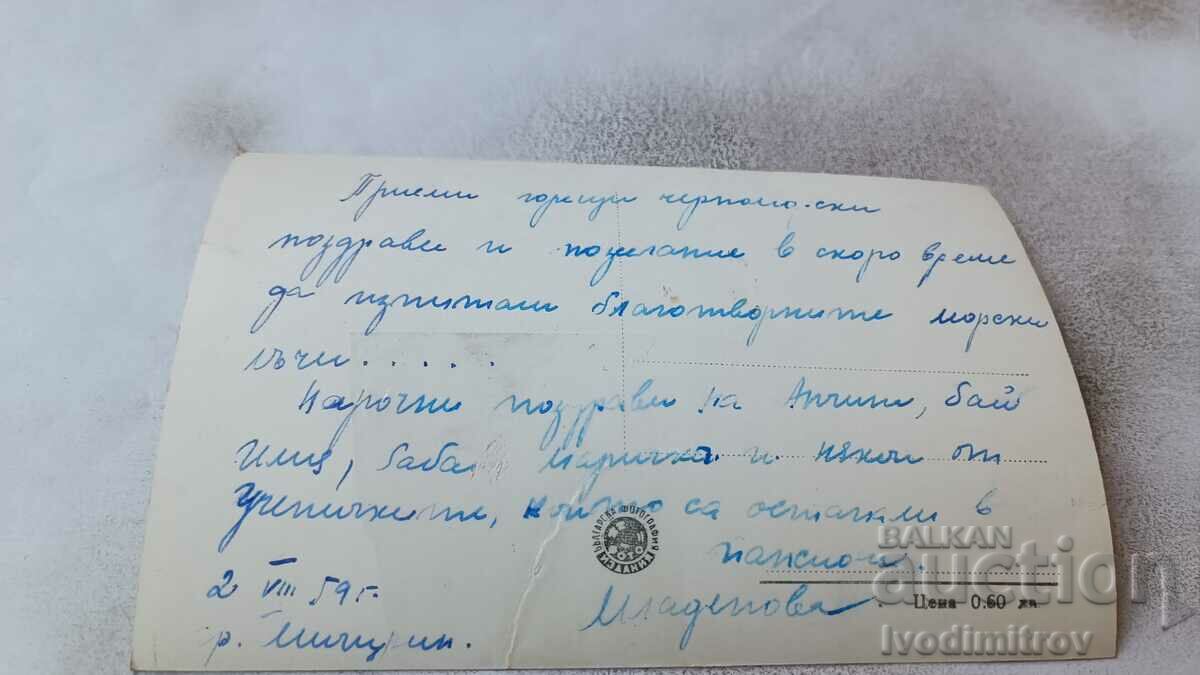 Приеми горещи черноморски
поздрави и пожелание в скоро време
да изпиташ благотворните морски
лъчи.....
Нарочни поздрави на Анчини, бай
Илия, баба Маричка и някои от
ученичките, които са останали в
пансиона.
2 VIII 59 г.
гр. Мичурин.
Младенова
БЪЛГАРСКА ФОТОГРАФИЯ
ИЗДАНИЕ
Цена 0.60 лв.
BALKAN
auction
Ivodimitrov